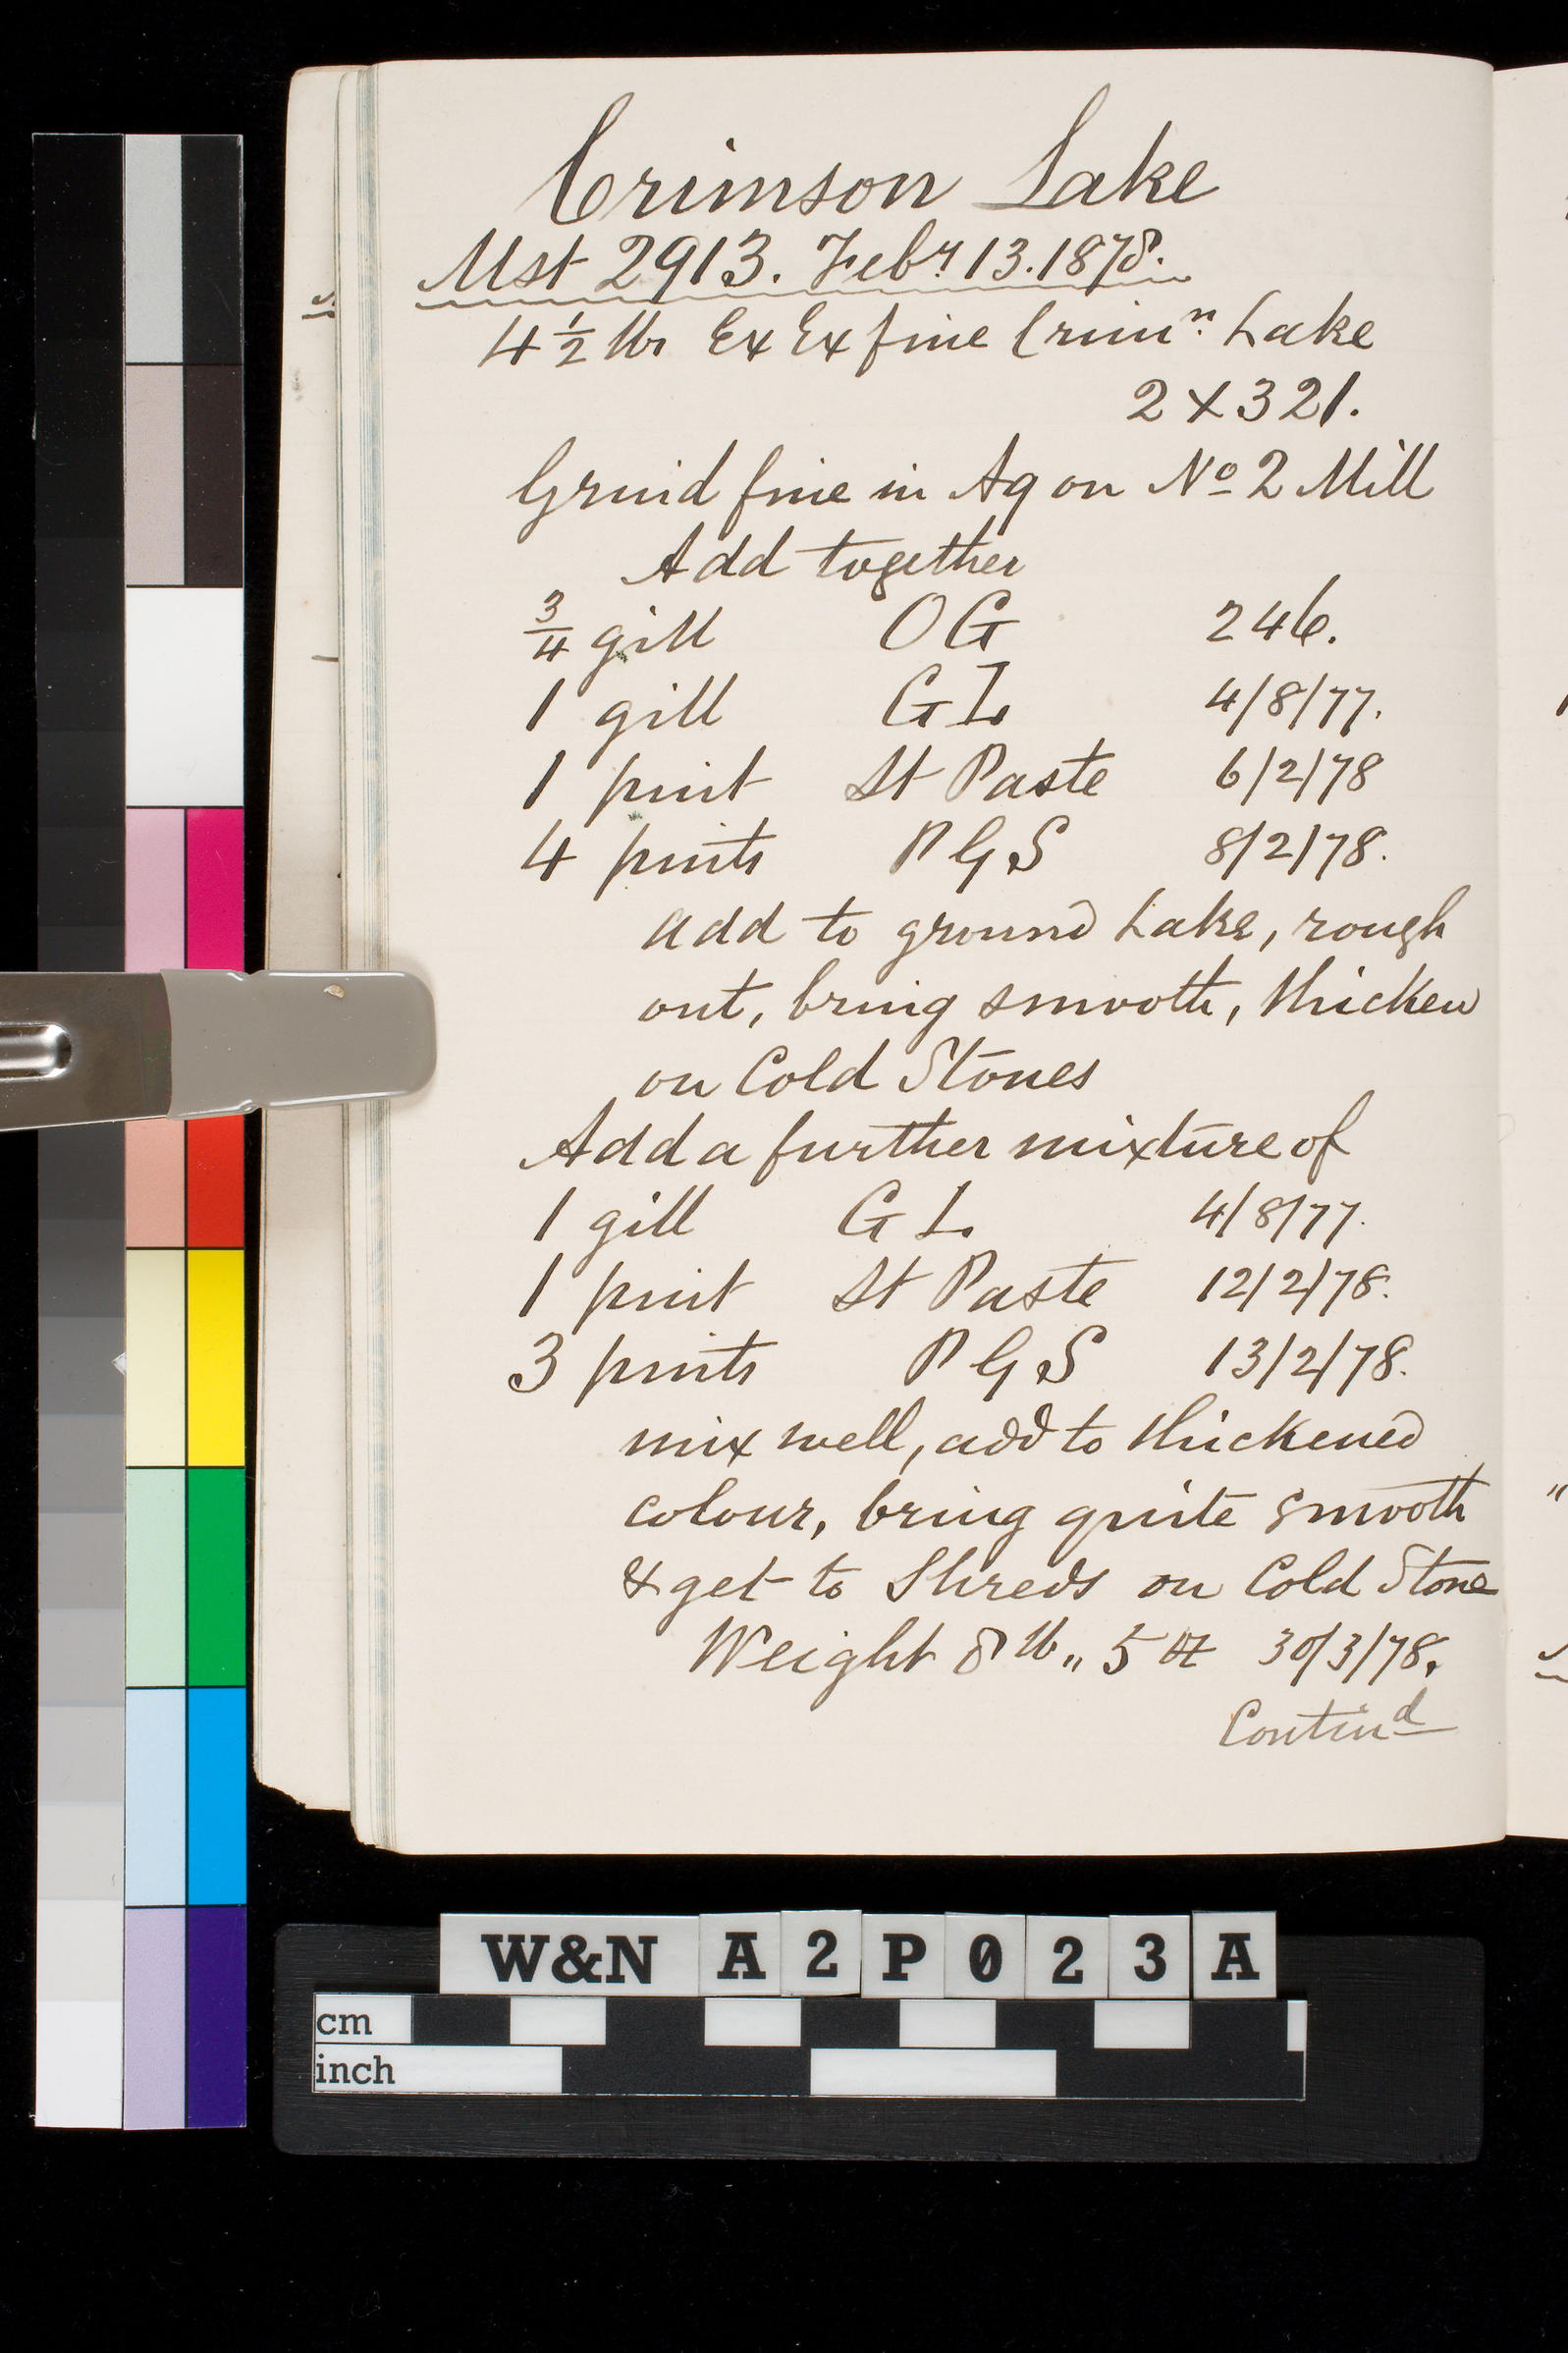 Crimson Lake
Mst 2913. Febʸ 13. 1878.
4 1/2 lbs Ex Ex fine Crimⁿ. Lake
2 X 321.
Grind fine in Aq on Nº 2 Mill
Add together
3/4 gill OG 246.
1 gill GL 4/8/77.
1 pint St Paste 6/2/78
4 pints PGS 8/2/78.
add to ground Lake, rough
out, bring smooth, thicken
on Cold Stones
Add a further mixture of
1 gill GL 4/8/77.
1 pint St Paste 12/2/78.
3 pints PGS 13/2/78.
mix well, add to thickened
colour, bring quite smooth
& get to Shreds on Cold Stone
Weight 8 lb „ 5 oz 30/3/78.
Continᵈ
W&N A2P023A
cm
inch